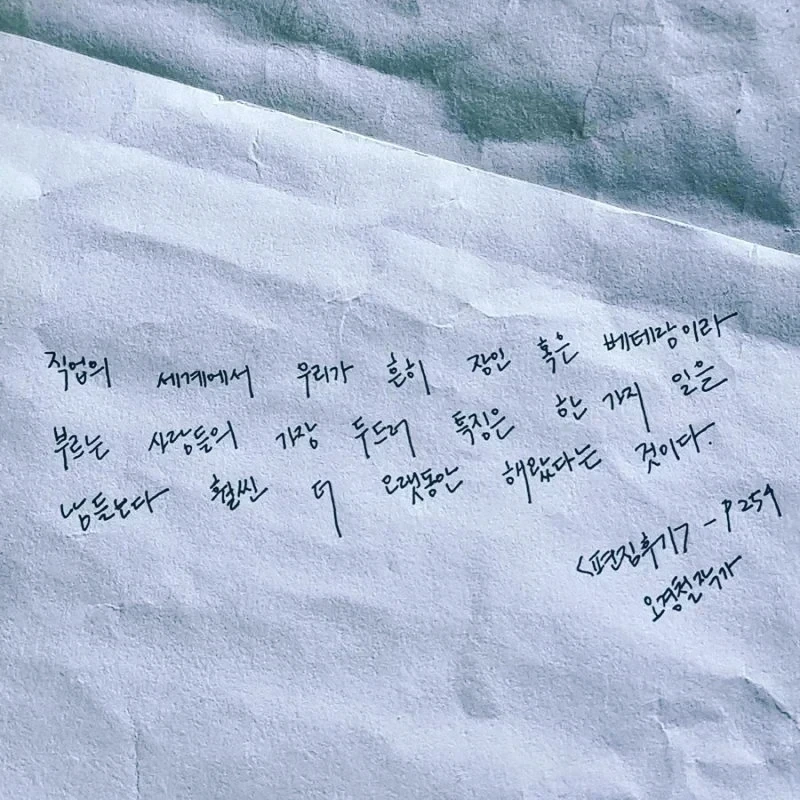 직업의 세계에서 우리가 흔히 장인 혹은 베테랑이라
부르는 사람들의 가장 두드러 특징은 한 가지 일을
남들보다 훨씬 더 오랫동안 해왔다는 것이다.
<편집후기> - P254
오경철작가